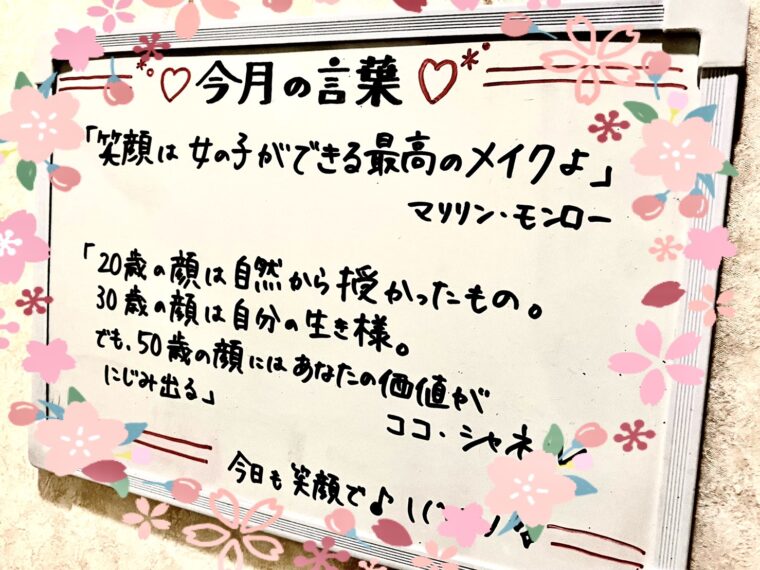 今月の言葉
「笑顔は女の子ができる最高のメイクよ」
マリリン・モンロー
「20歳の顔は自然から授かったもの。
30歳の顔は自分の生き様。
でも、50歳の顔にはあなたの価値が
にじみ出る」
ココ・シャネ
今日も笑顔で♪